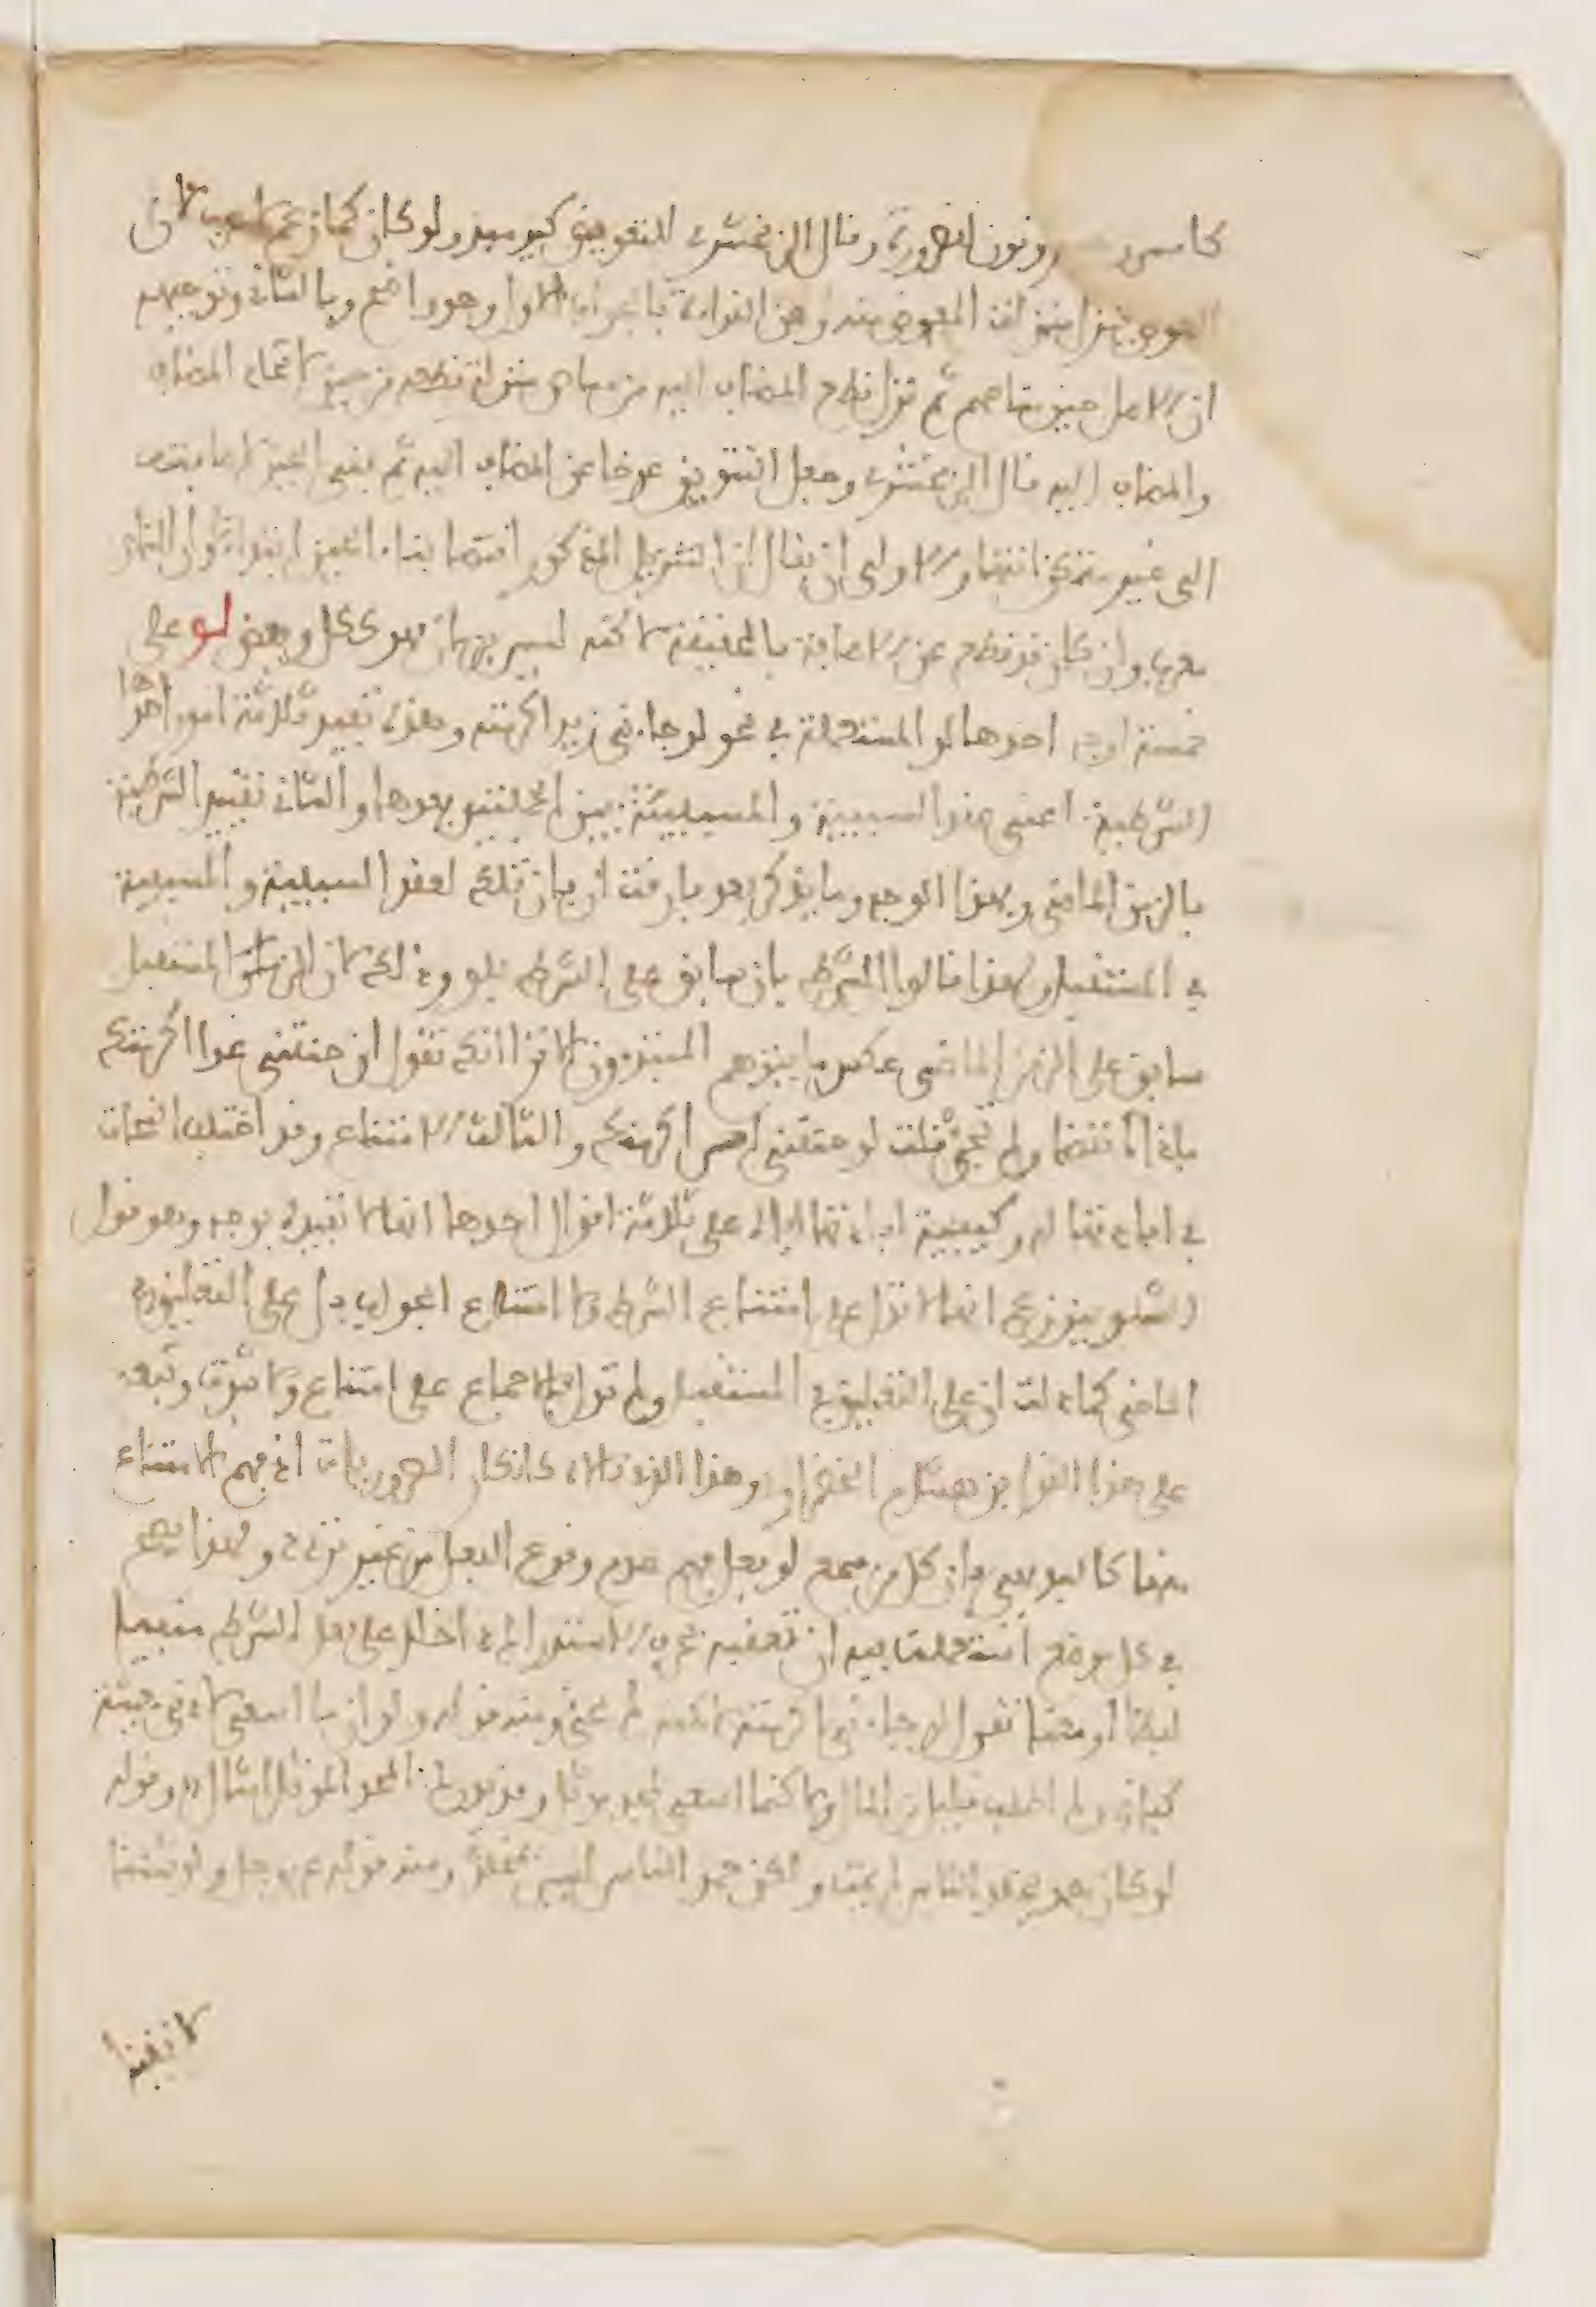 كامس ونون الضرورة وقال الزمخشري التنوين كيوميذ ولو كان كما زعم لاعرب لان
العوض ينزل منزلة المعوض منه وعن القراءة بالجواب الاول وهو واضح وبالثاني وتوجيهه
ان الاصل حين مناصهم ثم نزل قطع المضاف اليه من مناص منزلة قطعه من حين لاتحاد المضاف
والمضاف اليه قال الزمخشري وجعل التنوين عوضا عن المضاف اليه ثم بنى الحين لاضافته
الى غير متمكن انتهى والاولى ان يقال ان التنزيل المذكور اقتضا بناء الحين ابتداء وان المناص
معرب وان كان قد قطع عن الاضافة بالحقيقة لاكنه ليس بزمان فهو ككل وبعض لو على
خمسة اوجه احدها لو المستعملة في نحو لو جاءني زيد اكرمته وهذه تفيد ثلاثة امور احدها
الشرطية اعني عقد السببية والمسببية بين الجملتين بعدها والثاني تقييد الشرطية
بالزمن الماضي وبهذا الوجه وما يذكر بعد فارقت ان فان تلك لعقد السببية والمسببية
في المستقبل ولهذا قالوا الشرط بان سابق على الشرط بلو وذلك لان الزمن المستقبل
سابق على الزمن الماضي عكس ما يتوهم المبتدءون الا ترا انك تقول ان جئتني غدا اكرمتك
فاذا انقضا ولم تجئ قلت لو جئتني امس اكرمتك والثالث الامتناع وقد اختلف النحات
في افادتها له وكيفية افادتها اياه على ثلاثة اقوال احدها انها لا تفيده بوجه وهو قول
الشلوبين زعم انها لا تدل على امتناع الشرط ولا امتناع الجواب بل على التعليق في
الماضي كما دلت ان على التعليق في المستقبل ولم تدل بالاجماع على امتناع ولا ثبوت وتبعه
على هذا القول ابن هشام الخضراوي وهذا الذي قالاه كانكار الضروريات اذ فهم الامتناع
منها كالبديهي فان كل من سمع لو فعل فهم عدم وقوع الفعل من غير تردد ولهذا يصح
في كل موضع استعملت فيه ان تعقبه بحرف الاستدراك داخلا على فعل الشرط منفيا
لفظا او معنا تقول لو جاءني اكرمته لاكنه لم يجئ ومنه قوله ولو ان ما اسعى لادنى معيشة
كفاني ولم اطلب قليل من المال ولاكنما اسعى لمجد موثل وقد يدرك المجد الموثل امثالي وقوله
لو كان حمد يخلد الناس لم يمت ولكن حمد الناس ليس بمخلد ومنه قوله عز وجل ولو شئنا
لاتينا